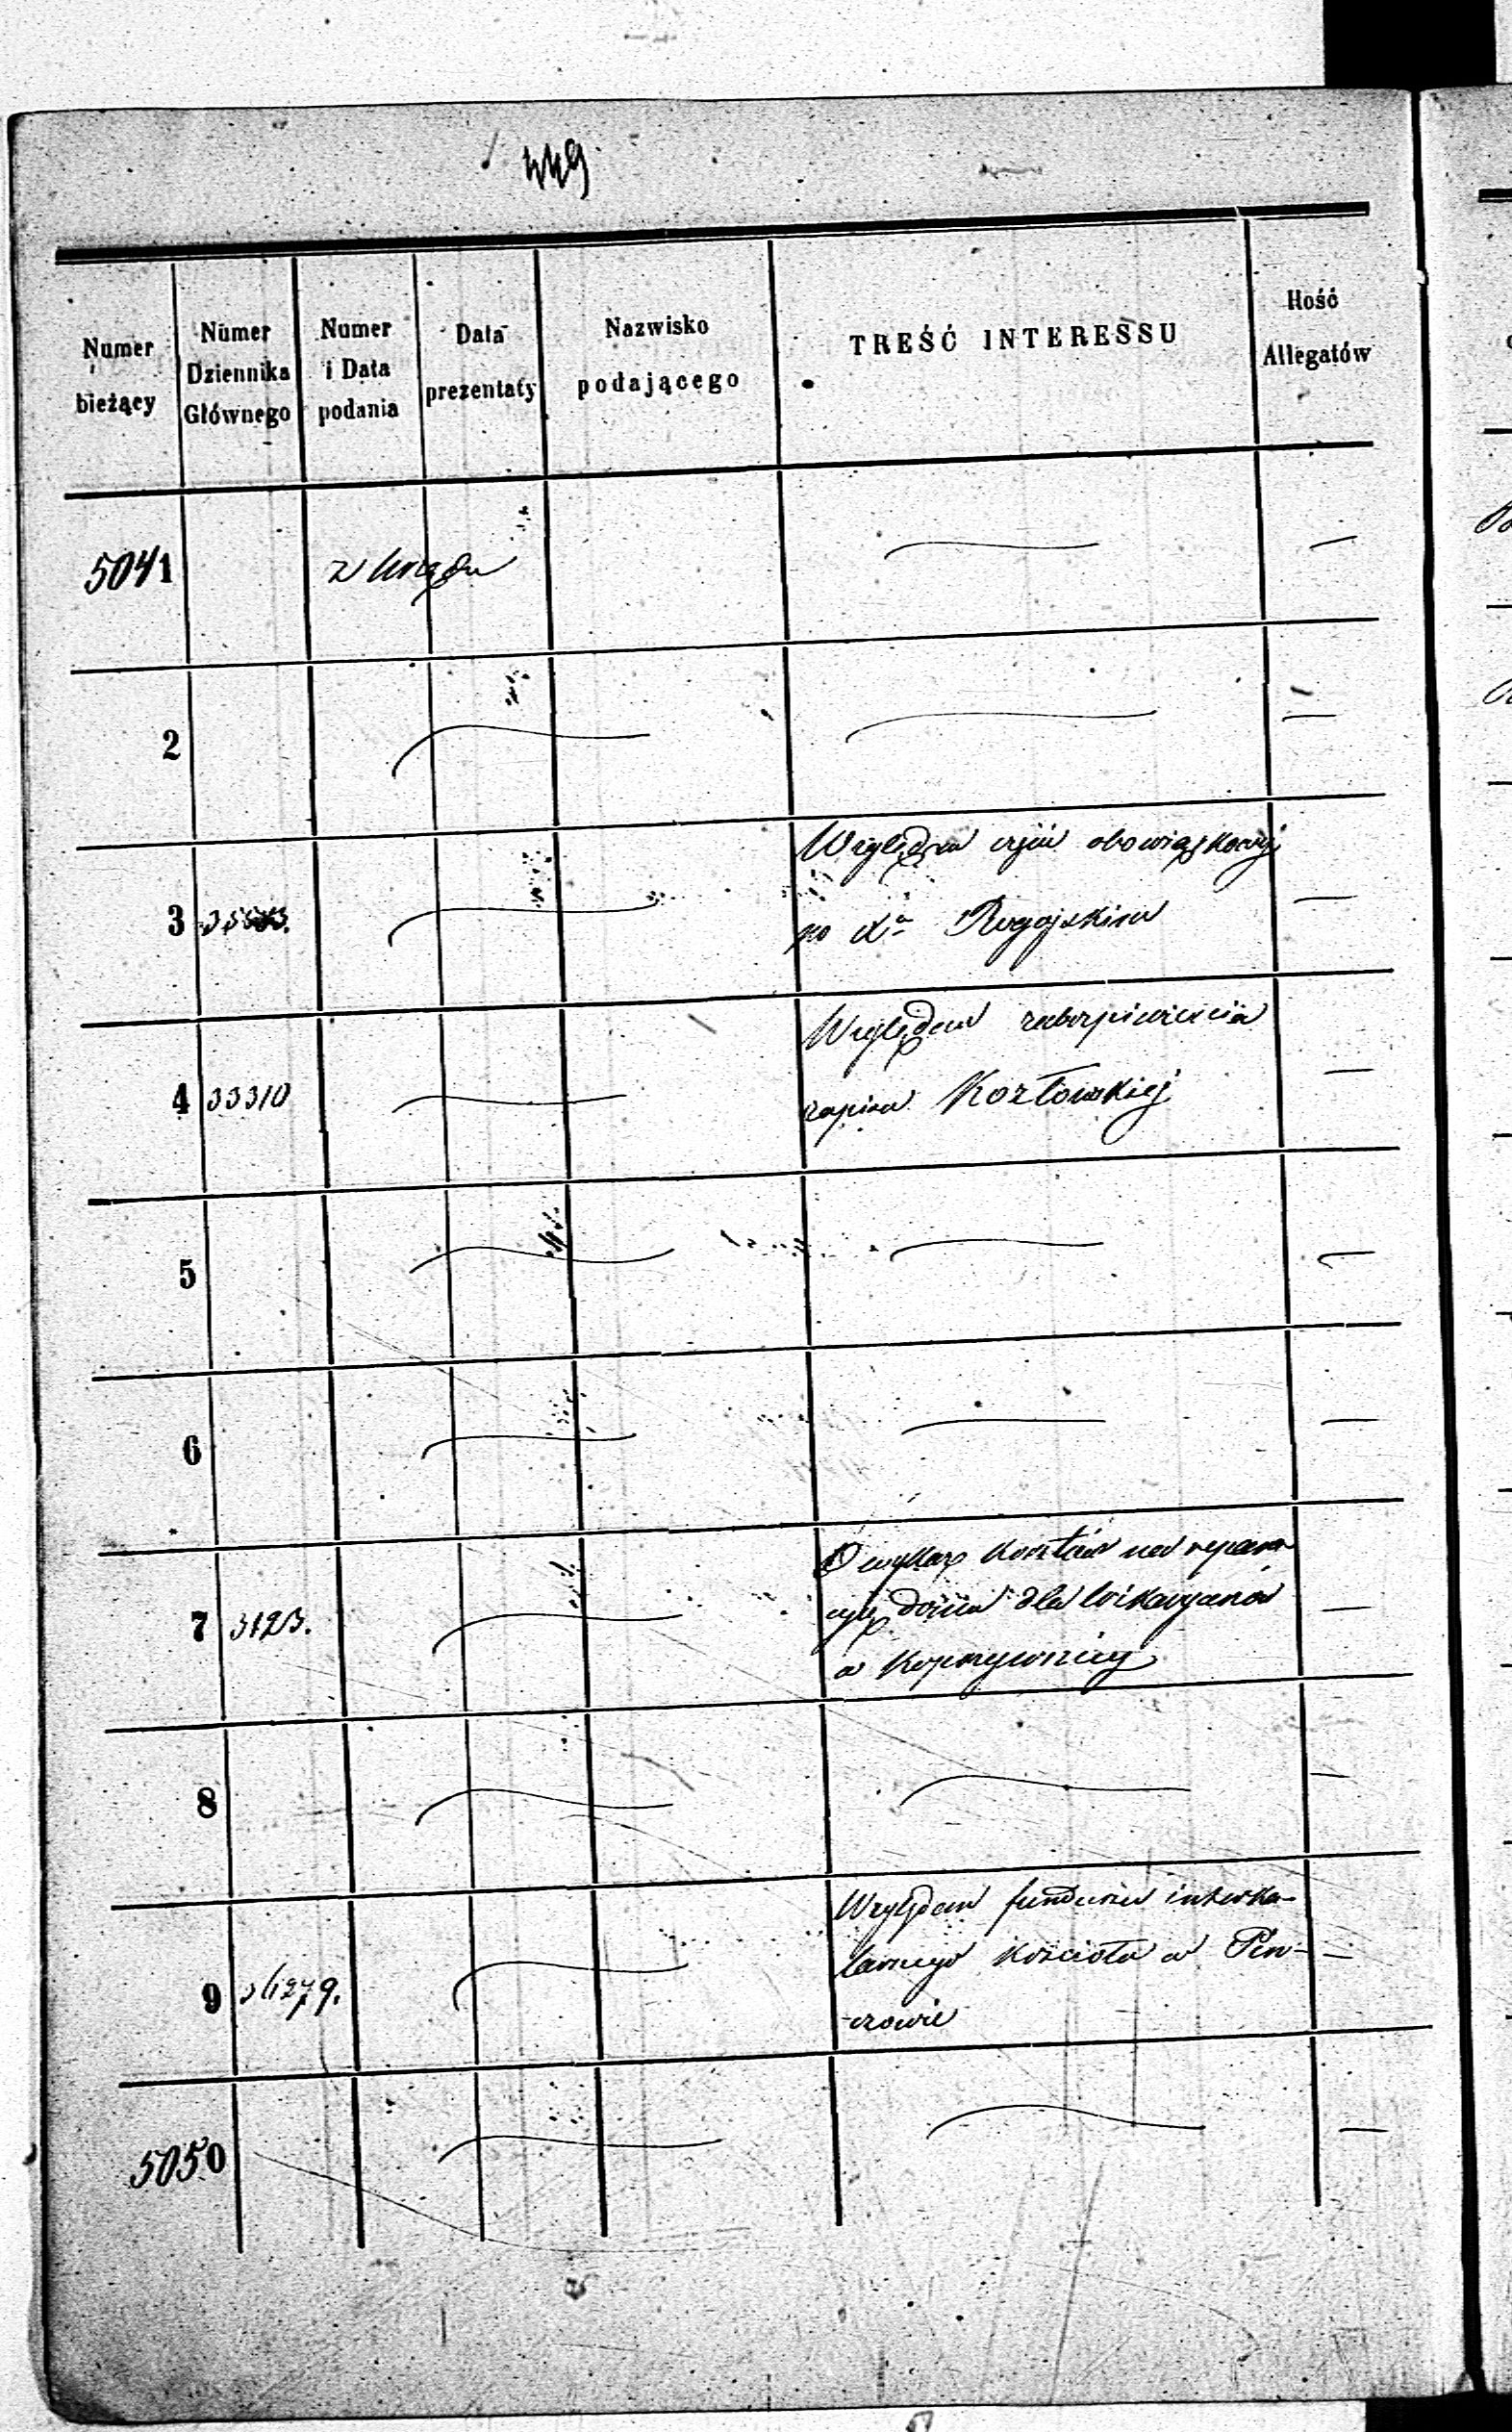 449
Numer bieżący
Numer Dziennika Głównego
Numer i Data podania
Data prezentaty
Nazwisko podającego
TREŚĆ INTERESSU
Ilość Allegatów
5041 z Urzędu — —
2 — — —
3 — Względem obowiązkowej —
po Xu Rogojskim
4 33310 — Względem zabezpieczenia —
zapisu Kozłowskiej
5 — — —
6 — — —
7 3123. — O wykaz kosztów na repara-
cyę domu dla Wikaryanów —
w Koprzywnicy
8 — — —
9 34279. — Względem funduszu interka-
larnego kościoła w Piń- —
czowie
5050 — — —